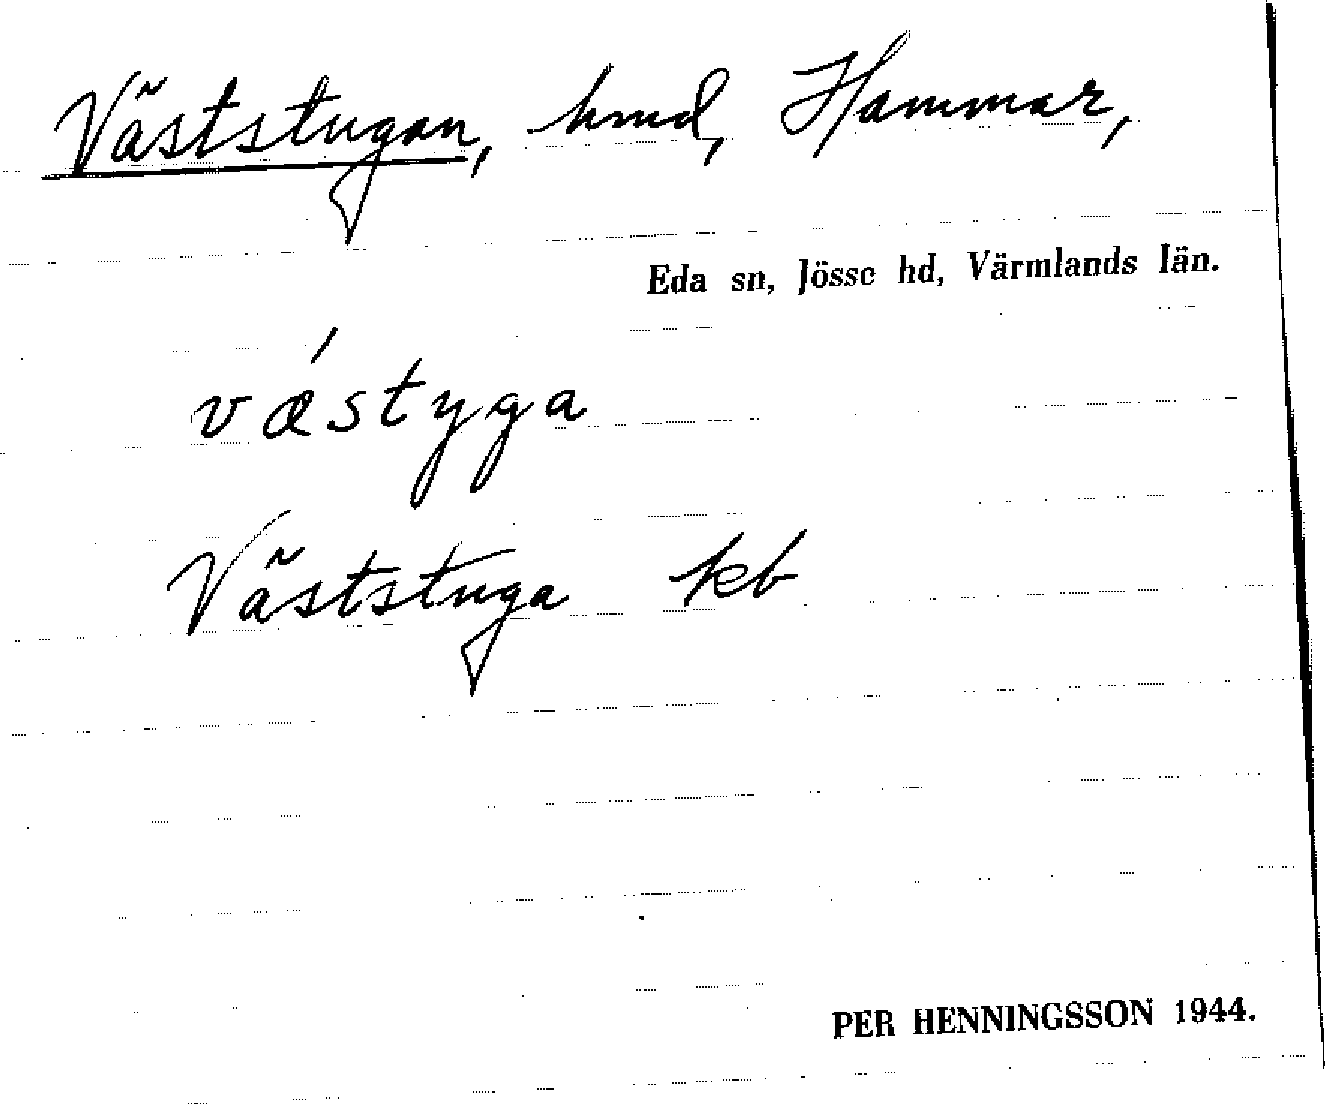 Väststugan, hmd, Hammar,
Eda sn, Jösse hd, Värmlands län.
væ´styga
Väststuga kb
PER HENNINGSSON 1944.